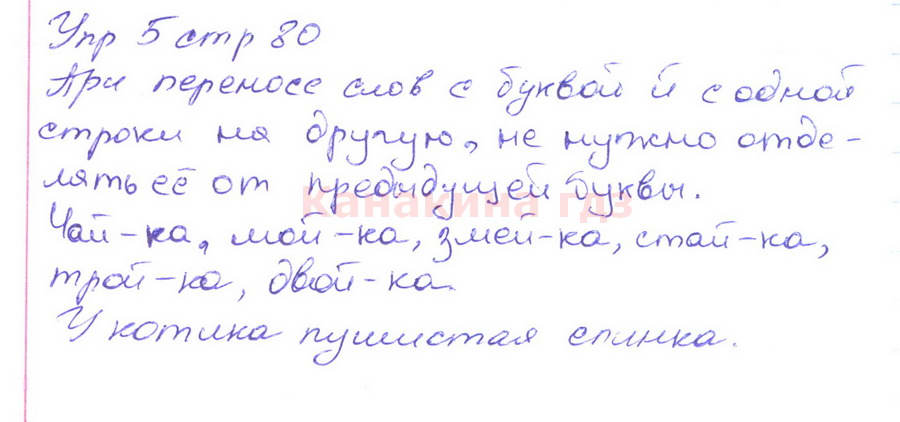 Упр 5 стр 80
При переносе слов с буквой й с одной
строки на другую, не нужно отде-
лять её от предыдущей буквы.
Канакина гдз
Чай-ка, мой-ка, змей-ка, стай-ка,
трой-ка, двой-ка.
У котика пушистая спинка.